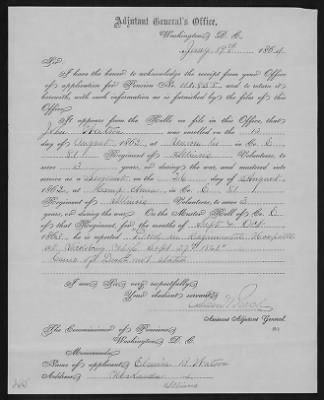 Adjutant General's Office,
Washington, D. C.
1864
Sir:
I have the honor to acknowledge the receipt from your Office
of application for Pension No. and to return it
herewith, with such information as is furnished by the files of this
Office.
It appears from the Rolls on file in this Office, that
John Watson was enrolled on the 12
day of August 1862, at in Co. E
81 Regiment of Illinois Volunteers, to
serve 3 years, or during the war, and was mustered into
service as a Sergeant on the 26 day of August
1862, at Camp Anna, in Co. E 81
Regiment of Illinois Volunteers, to serve 3
years, or during the war. On the Muster Roll of Co. E
of that Regiment for the months of Sept & Oct
1863, he is reported Died in Hospital
at Sept 27th 186
Cause of Death not stated
I am, Sir, very respectfully,
Your obedient servant,
Assistant Adjutant General.
The Commissioner of Pensions,
Washington, D. C.
Memoranda:
Name of applicant B. Watson
Address
Illinois